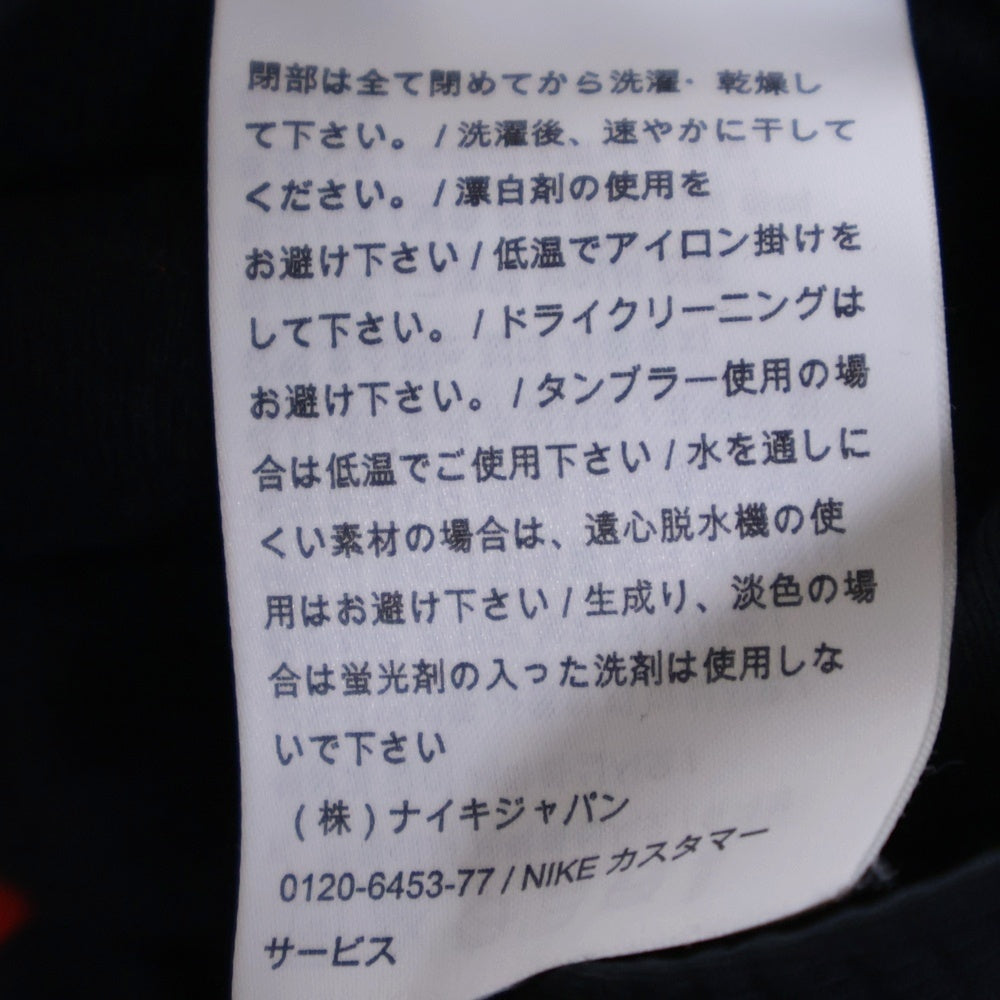 閉部は全て閉めてから洗濯・乾燥し
て下さい。/洗濯後、速やかに干して
ください。/漂白剤の使用を
お避け下さい/低温でアイロン掛けを
して下さい。/ドライクリーニングは
お避け下さい。/タンブラー使用の場
合は低温でご使用下さい/水を通しに
くい素材の場合は、遠心脱水機の使
用はお避け下さい/生成り、淡色の場
合は蛍光剤の入った洗剤は使用しな
いで下さい
(株)ナイキジャパン
0120-6453-77/NIKE カスタマー
サービス